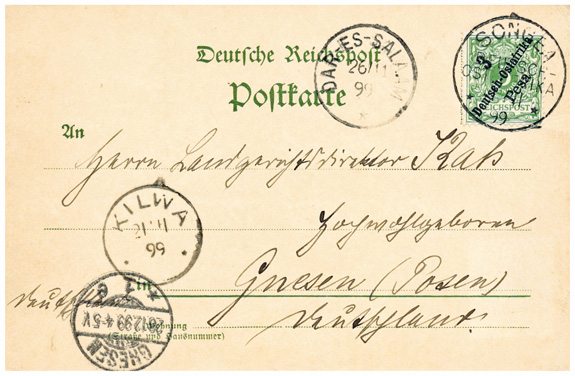 Deutsche Reichspost
Postkarte
DAR-ES-SALAAM
26/11
99
SONGEA
99
3
Deutsch-Ostafrika
Pesa
REICHSPOST
An
Herrn Landgerichtsdirektor Kah
Hochwohlgeboren
KILWA
99
in Gnesen (Posen)
Deutschland
Deutschland.
Wohnung
(Straße und Hausnummer)
GNESEN
26.12.99.4-5V.